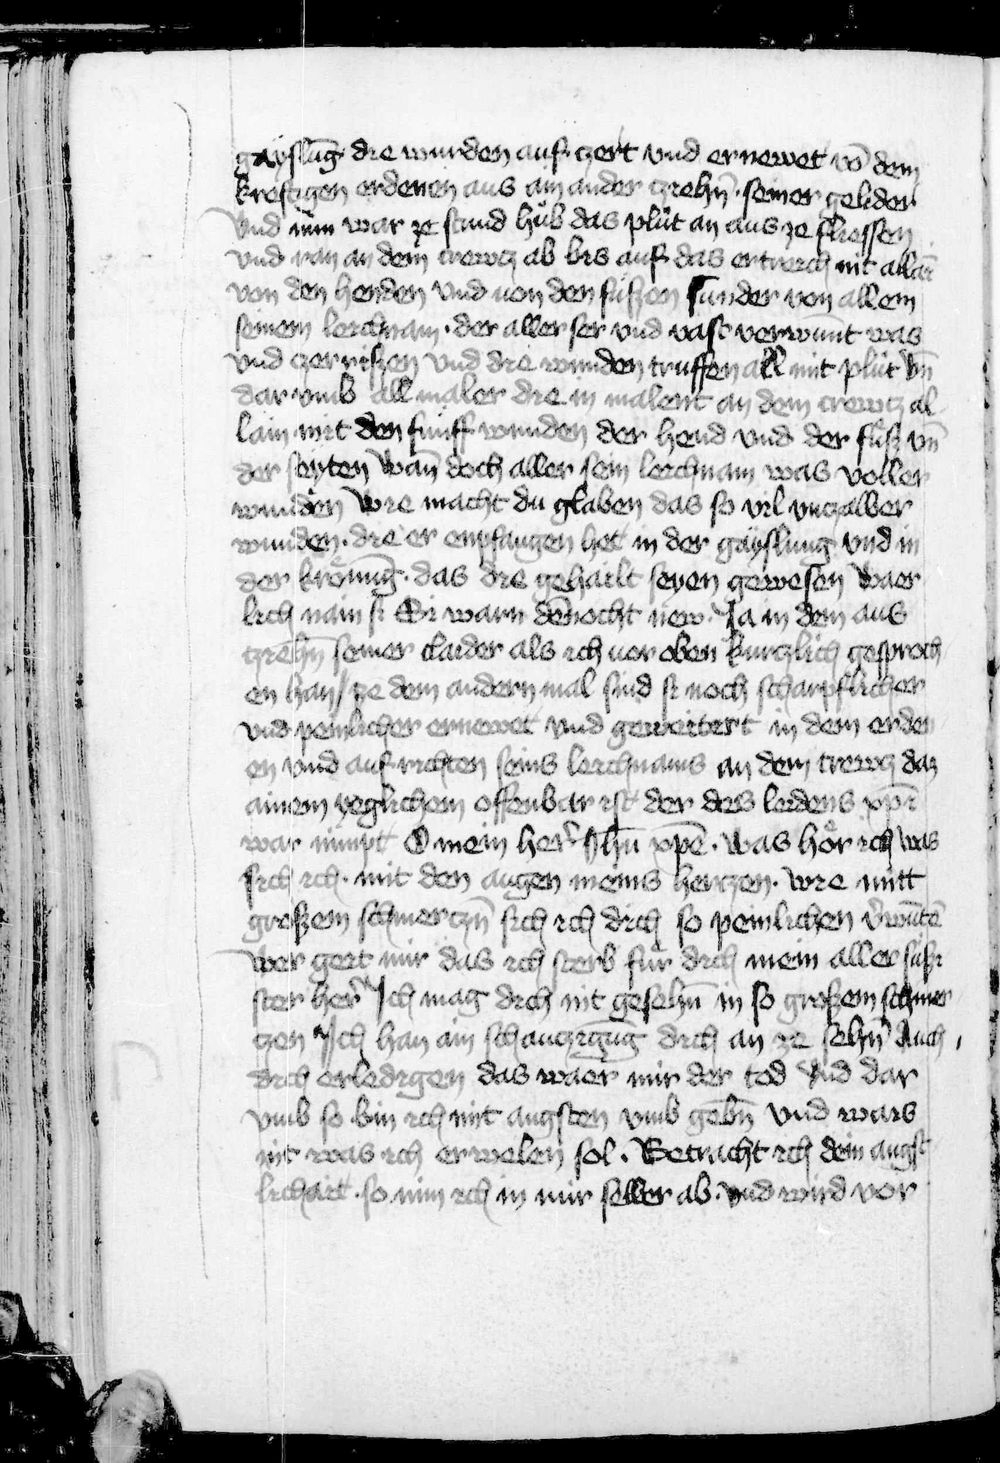 gaÿslūg die wunden auf czert vnd ernewet vō dem
kreftigen erdenen aus ain ander cziehn̄ · seiner gelider
Vnd nun war ze stund hůb das plůt an aus ze fliessen
vnd ran an dem crewcz ab bis auf das ertreich nit allain̄
von den henden vnd uon den fůszen sunder von allem
seinem leichnam · der aller ser vnd vast verwunt was
vnd czerriszen vnd die wunden truffen all mit plůt vn̄
dar vmb all maler die in malent an dem crewcz al
lain mit den funff wunden der hend vnd der fůsz vn̄
der seyten wan̄ doch aller sein leichnam was voller
wunden Wie macht du glaben das so vil vnczalber
wunden · die er enpfangen het in der gaÿslung vnd in
der krönūg · das die gehailt seyen gewesen Waer
lich nain si Si warn dēnocht new · Ja in dem aus
cziehn̄ seiner claider als ich uor oben kurczlich gesproch
en han / ze dem andern mal sind si noch scharpflicher
vnd peinlicher ernewet vnd geweitert in dem erden
en vnd auf richten seins leichnams an dem crewcz daz
ainem yeglichem offenbar ist der des leidens xp̄i
war nimpt O mein her̄ Jhū xp̄e · was hör ich was
sich ich · mit den augen meins herczen · wie mitt
groszem schmerczn̄ sich ich dich so peinlichen v̄wūtē
wer gert mir das ich sterb für dich mein aller süszi
ster her̄ Ich mag dich nit gesehn̄ in so groszem schmer
zen Ich han ain schauczigūg dich an ze sehn̄ Auch
dich erledigen das waer mir der tod Vnd dar
vmb so bin ich mit angsten vmb gebn̄ vnd wais
nit was ich erwelen sol · Betracht ich dein angst
lichait · so nim ich in mir selber ab · vnd wird vor